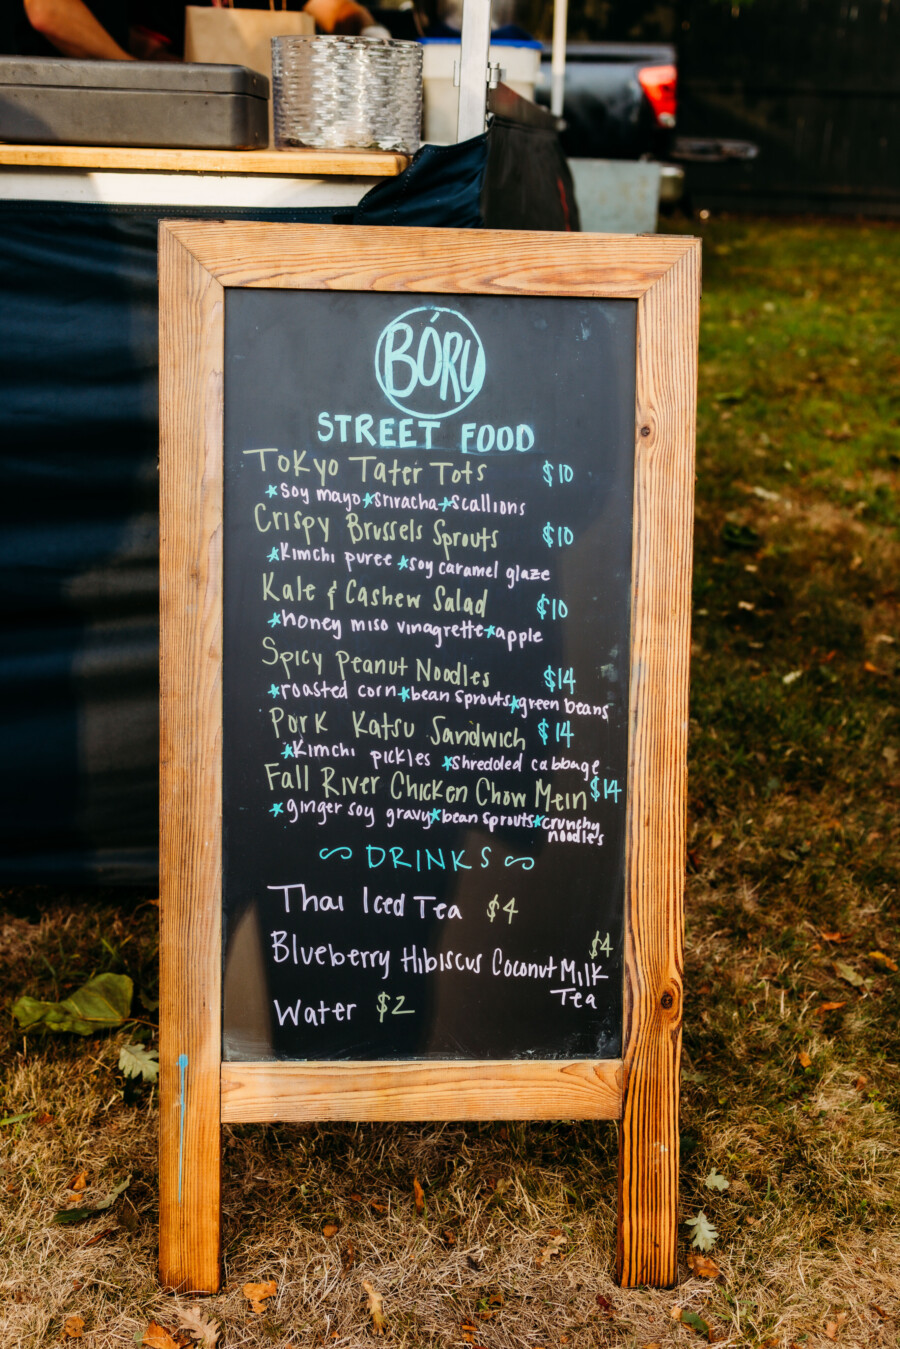 BÓRU
STREET FOOD
Tokyo Tater Tots $10
*soy mayo*sriracha*scallions
Crispy Brussels Sprouts $10
*Kimchi puree *soy caramel glaze
Kale & Cashew Salad $10
*honey miso vinagrette*apple
Spicy Peanut Noodles $14
*roasted corn*bean sprouts*green beans
Pork Katsu Sandwich $14
*Kimchi pickles *shredded cabbage
Fall River Chicken Chow Mein $14
*ginger soy gravy*bean sprouts*crunchy
noodles
~DRINKS~
Thai Iced Tea $4
Blueberry Hibiscus Coconut Milk $4
Tea
Water $2